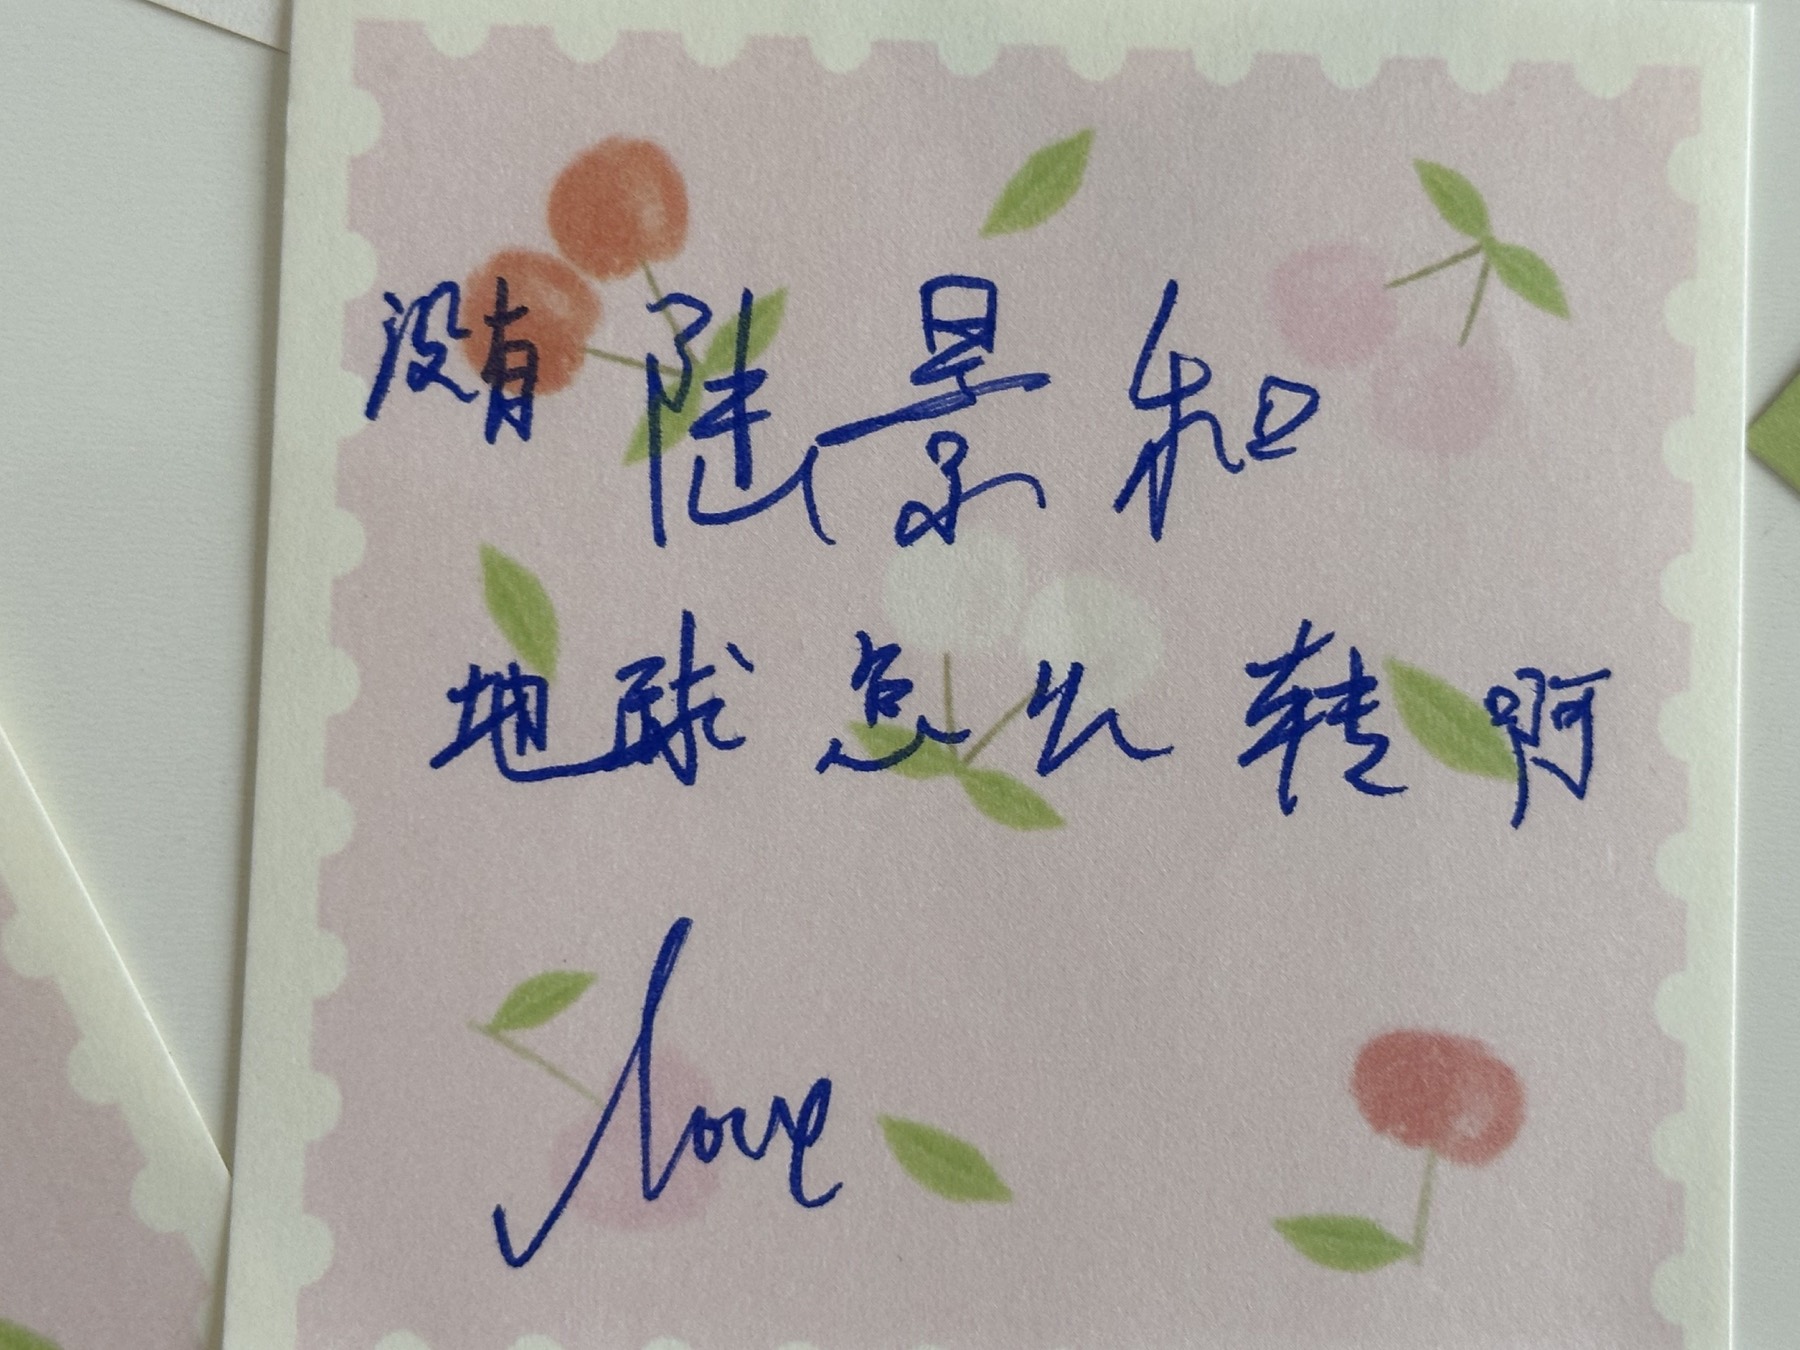 没有陆景和
地球怎么转啊
love